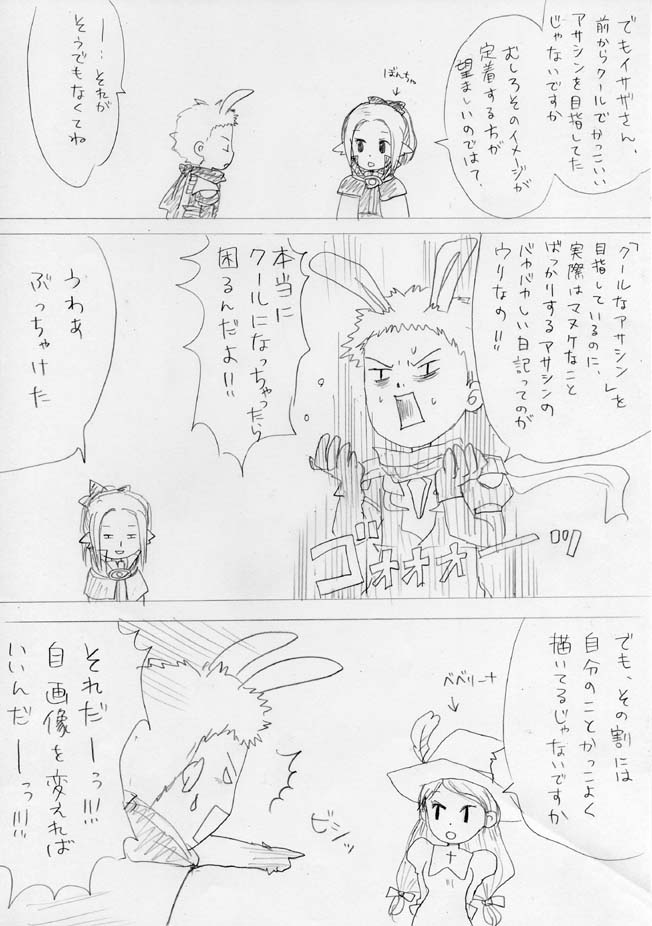 でもイサザさん、
前からクールでかっこいい
アサシンを目指してた
じゃないですか
むしろそのイメージが
定着する方が
望ましいのでは?
ぼんちゃ
ー…それが
そうでもなくてね
「クールなアサシン」を
目指しているのに、
実際はマヌケなこと
ばっかりするアサシンの
バカバカしい日記ってのが
ウリなの!!
本当に
クールになっちゃったら
困るんだよ!!
ゴォオオォーッ
うわぁ
ぶっちゃけた
でも、その割には
自分のことかっこよく
描いてるじゃないですか
ベベリーナ
ビシッ
それだーっ!!!
自画像を変えれば
いいんだーっ!!!